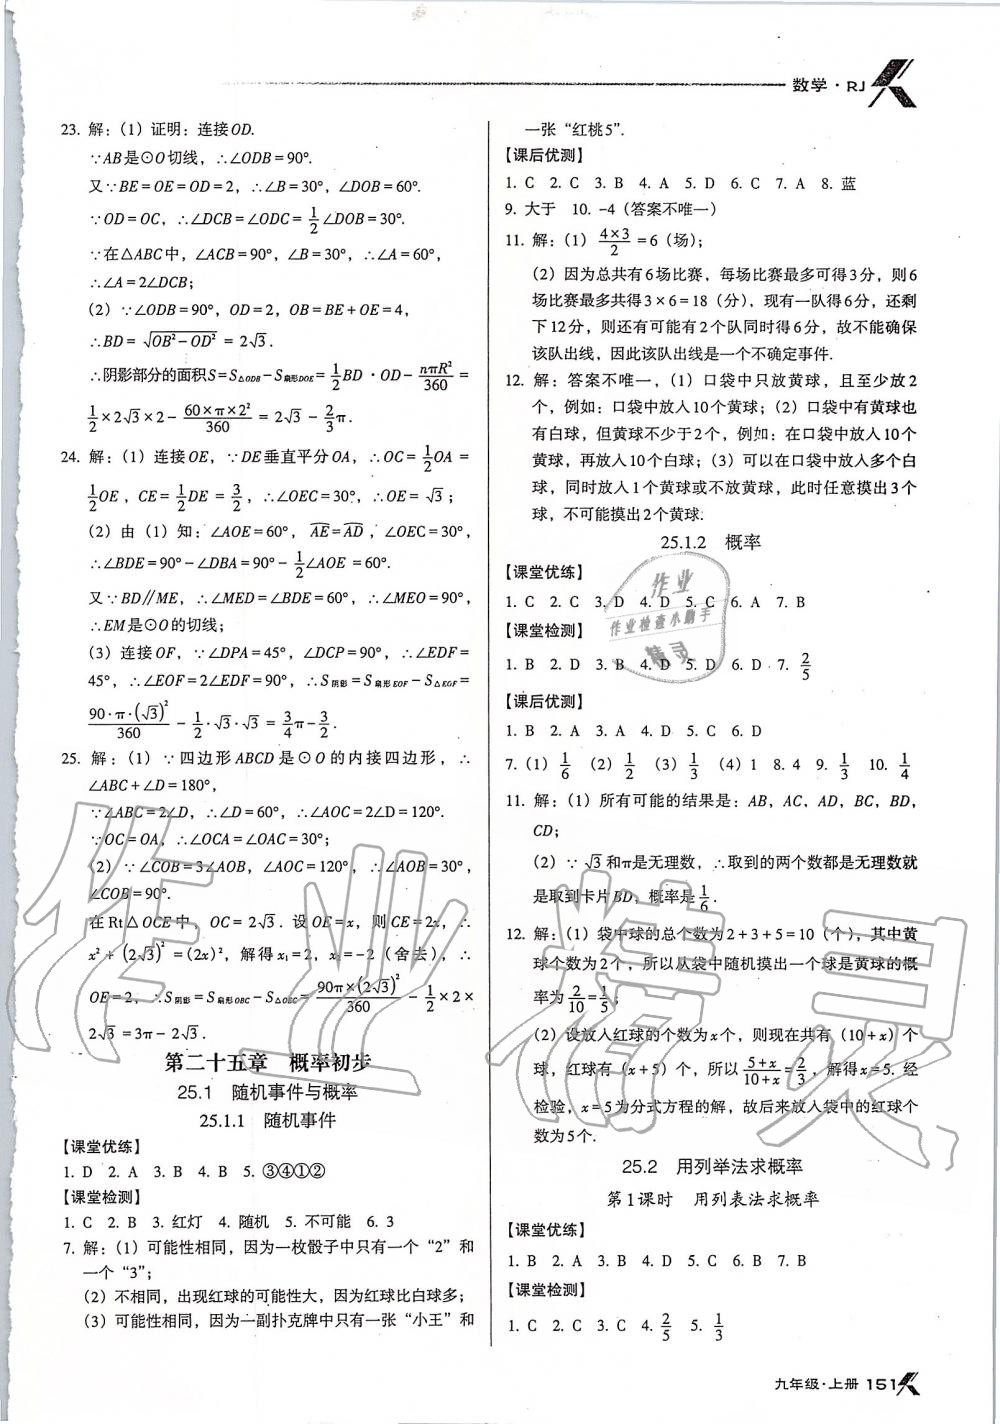 数学·RJ
23. 解：(1) 证明：连接OD.
∵AB是⊙O切线，∴∠ODB＝90°.
又∵BE＝OE＝OD＝2，∴∠B＝30°，∠DOB＝60°.
∵OD＝OC，∴∠DCB＝∠ODC＝1/2∠DOB＝30°.
∵在△ABC中，∠ACB＝90°，∠B＝30°，∴∠A＝60°，
∴∠A＝2∠DCB；
(2) ∵∠ODB＝90°，OD＝2，OB＝BE＋OE＝4，
∴BD＝√(OB²－OD²)＝2√3.
∴阴影部分的面积S＝S△ODB－S扇形DOE＝1/2BD·OD－nπR²/360＝
1/2×2√3×2－60×π×2²/360＝2√3－2/3π.
24. 解：(1) 连接OE，∵DE垂直平分OA，∴OC＝1/2OA＝
1/2OE，CE＝1/2DE＝3/2，∴∠OEC＝30°，∴OE＝√3；
(2) 由（1）知：∠AOE＝60°，AE＝AD，∠OEC＝30°，
∴∠BDE＝90°－∠DBA＝90°－1/2∠AOE＝60°.
又∵BD∥ME，∴∠MED＝∠BDE＝60°，∴∠MEO＝90°，
∴EM是⊙O的切线；
(3) 连接OF，∵∠DPA＝45°，∠DCP＝90°，∴∠EDF＝
45°，∴∠EOF＝2∠EDF＝90°，∴S阴影＝S扇形EOF－S△EOF＝
90·π·(√3)²/360－1/2·√3·√3＝3/4π－3/2.
25. 解：(1) ∵四边形ABCD是⊙O的内接四边形，∴
∠ABC＋∠D＝180°，
∵∠ABC＝2∠D，∴∠D＝60°，∴∠AOC＝2∠D＝120°.
∵OC＝OA，∴∠OCA＝∠OAC＝30°；
(2) ∵∠COB＝3∠AOB，∠AOC＝120°，∴∠AOB＝30°，
∠COB＝90°.
在Rt△OCE中，OC＝2√3. 设OE＝x，则CE＝2x，∴
x²＋(2√3)²＝(2x)²，解得x₁＝2，x₂＝－2（舍去），∴
OE＝2，∴S阴影＝S扇形OBC－S△OEC＝90π×(2√3)²/360－1/2×2×
2√3＝3π－2√3.
第二十五章 概率初步
25.1 随机事件与概率
25.1.1 随机事件
【课堂优练】
1. D 2. A 3. B 4. B 5. ③④①②
【课堂检测】
1. C 2. B 3. 红灯 4. 随机 5. 不可能 6. 3
7. 解：(1) 可能性相同，因为一枚骰子中只有一个“2”和
一个“3”；
(2) 不相同，出现红球的可能性大，因为红球比白球多；
(3) 可能性相同，因为一副扑克牌中只有一张“小王”和
一张“红桃5”.
【课后优测】
1. C 2. C 3. B 4. A 5. D 6. C 7. A 8. 蓝
9. 大于 10. －4（答案不唯一）
11. 解：(1) 4×3/2＝6（场）；
(2) 因为总共有6场比赛，每场比赛最多可得3分，则6
场比赛最多共得3×6＝18（分），现有一队得6分，还剩
下12分，则还有可能有2个队同时得6分，故不能确保
该队出线，因此该队出线是一个不确定事件.
12. 解：答案不唯一，(1) 口袋中只放黄球，且至少放2
个，例如：口袋中放入10个黄球；(2) 口袋中有黄球也
有白球，但黄球不少于2个，例如：在口袋中放入10个
黄球，再放入10个白球；(3) 可以在口袋中放入多个白
球，同时放入1个黄球或不放黄球，此时任意摸出3个
球，不可能摸出2个黄球.
25.1.2 概率
【课堂优练】
1. C 2. C 3. D 4. D 5. C 6. A 7. B
【课堂检测】
1. B 2. D 3. B 4. D 5. D 6. D 7. 2/5
【课后优测】
1. B 2. A 3. A 4. D 5. C 6. D
7. (1) 1/6 (2) 1/2 (3) 1/3 (4) 1 8. 4 9. 1/3 10. 1/4
11. 解：(1) 所有可能的结果是：AB，AC，AD，BC，BD，
CD；
(2) ∵√3和π是无理数，∴取到的两个数都是无理数就
是取到卡片BD，概率是1/6.
12. 解：(1) 袋中球的总个数为2＋3＋5＝10（个），其中黄
球个数为2个，所以从袋中随机摸出一个球是黄球的概
率为2/10＝1/5；
(2) 设放入红球的个数为x个，则现在共有（10＋x）个
球，红球有（x＋5）个，所以(5＋x)/(10＋x)＝2/3，解得x＝5. 经
检验，x＝5为分式方程的解，故后来放入袋中的红球个
数为5个.
25.2 用列举法求概率
第1课时 用列表法求概率
【课堂优练】
1. B 2. A 3. B 4. D 5. C 6. B 7. B
【课堂检测】
1. C 2. C 3. C 4. 2/5 5. 1/3
九年级·上册 151
作业
作业检查小助手
精灵
作业精灵